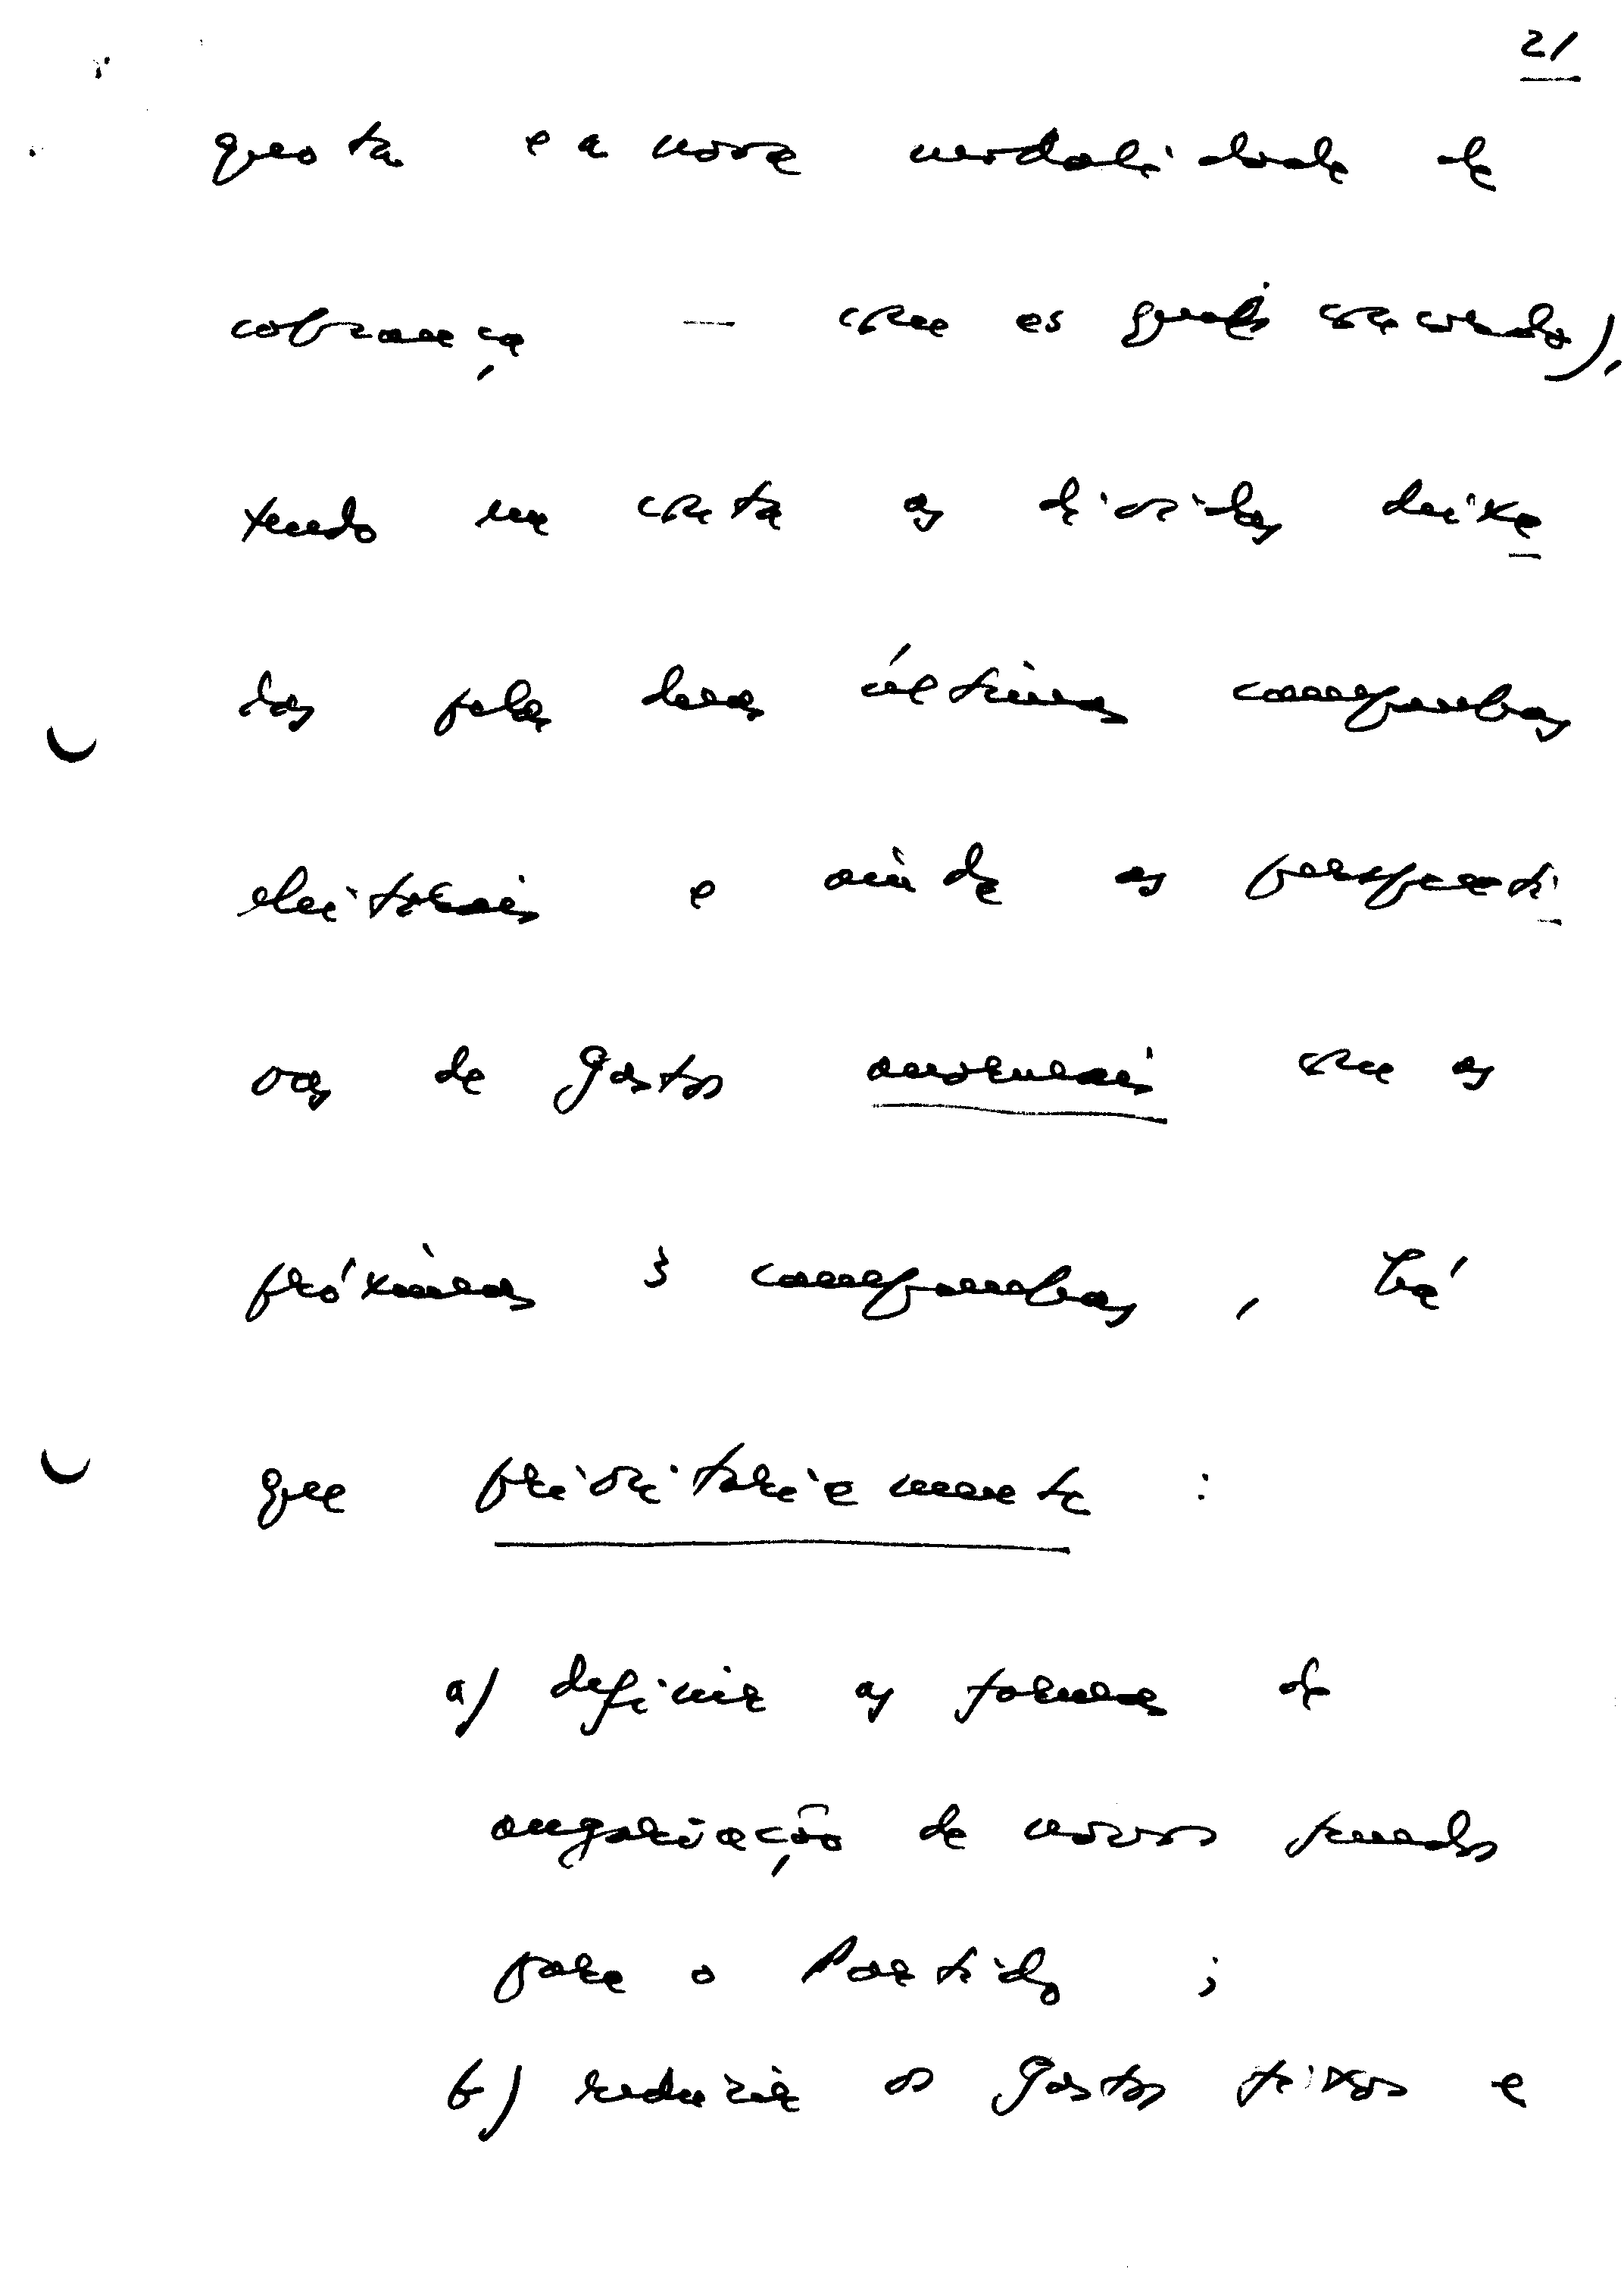 21
quota e a nova modalidade de
cobrança — com as quais concordo),
tendo em conta as dívidas deixa
das pelas duas últimas campanhas
eleitorais e ainda as perspecti
vas de gastos anormais com as
próximas 3 campanhas, há
que prioritariamente :
a) definir as formas de
angariação de novos fundos
para o Partido ;
b) reduzir os gastos fixos e